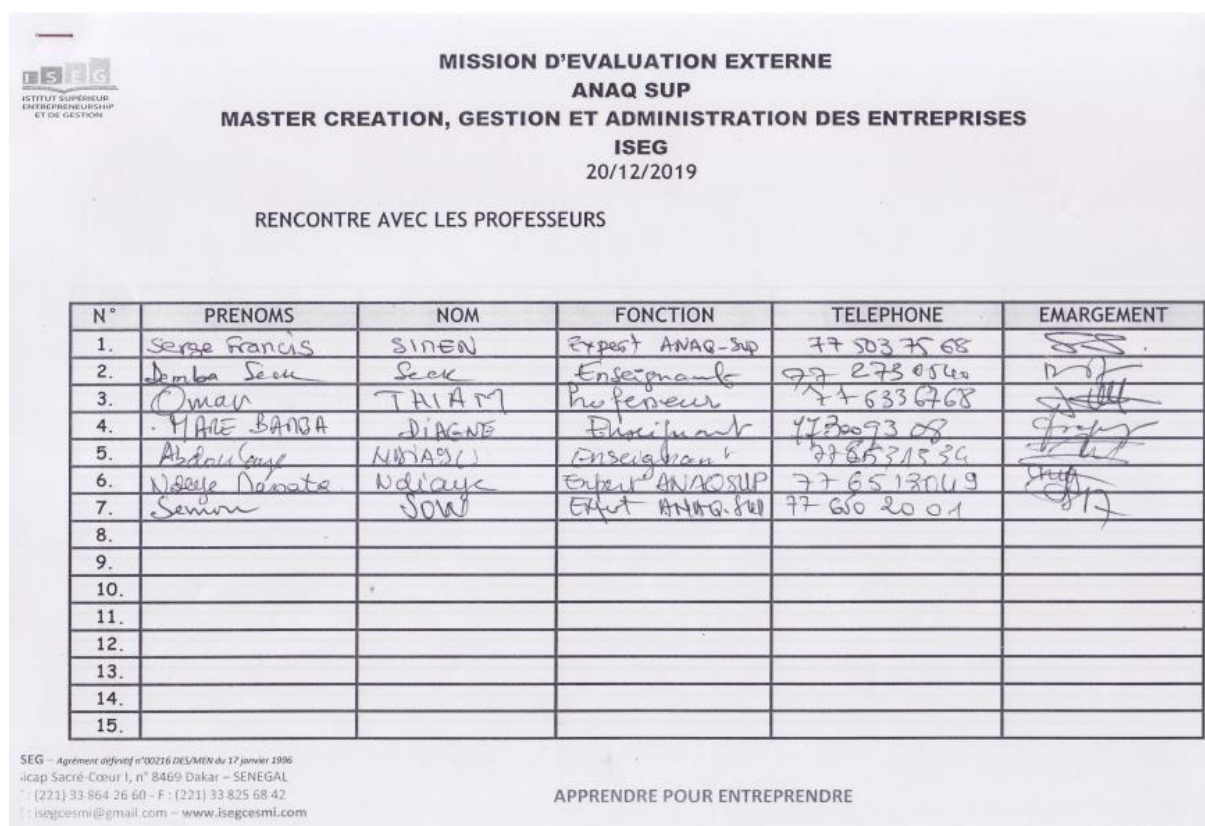 ISEG
ISTITUT SUPÉRIEUR
ENTREPRENEURSHIP
ET DE GESTION
MISSION D'EVALUATION EXTERNE
ANAQ SUP
MASTER CREATION, GESTION ET ADMINISTRATION DES ENTREPRISES
ISEG
20/12/2019
RENCONTRE AVEC LES PROFESSEURS
N° PRENOMS NOM FONCTION TELEPHONE EMARGEMENT
1. Serge Francis SINEN Expert ANAQ-Sup 77 503 75 68
2. Demba Seck Seck Enseignant 77 273 0540
3. Omar THIAM Professeur 77 6336768
4. BAMBA DIAGNE Enseignant
5. Abdoulaye Enseignant
6. Ndeye Ndiaye Expert ANAQSUP 77 6513049
7. SOW Expert ANAQ-SUP 77 650 20 01
8.
9.
10.
11.
12.
13.
14.
15.
SEG – Agrément définitif n°00216 DES/MEN du 17 janvier 1996
icap Sacré-Cœur I, n° 8469 Dakar – SENEGAL
: (221) 33 864 26 60 - F : (221) 33 825 68 42
: isegcesmi@gmail.com – www.isegcesmi.com
APPRENDRE POUR ENTREPRENDRE